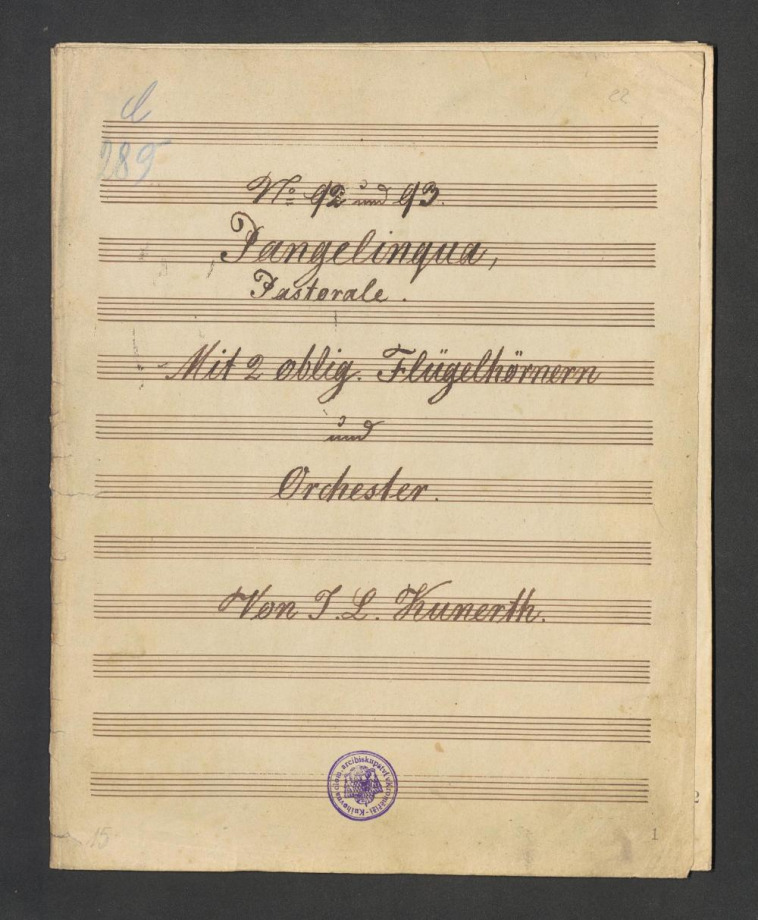 d
22
289
Nº 92 und 93.
Pangelingua,
Pastorale.
Mit 2 oblig. Flügelhörnern
und
Orchester.
Von J. L. Kunerth.
Knihovna olom. arcibiskupství v Kroměříži
2
15
1